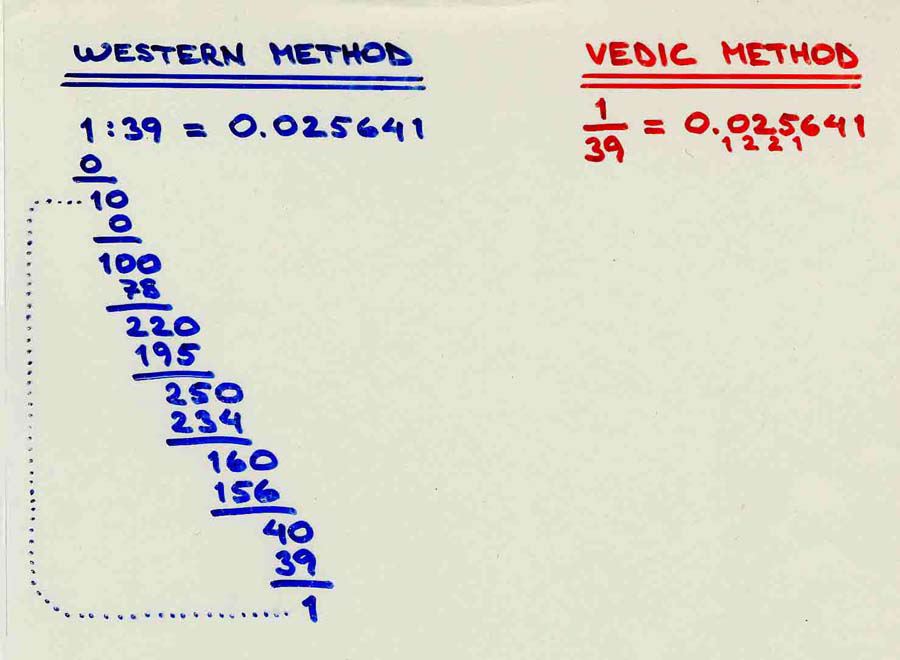 WESTERN METHOD
1:39 = 0.025641
0
10
0
100
78
220
195
250
234
160
156
40
39
1
VEDIC METHOD
1
39 = 0.025641
1 2 2 1